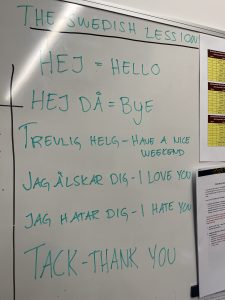 THE SWEDISH LESSION
HEJ = HELLO
HEJ DÅ = BYE
TREVLIG HELG - HAVE A NICE
WEEKEND
JAG ÄLSKAR DIG - I LOVE YOU
JAG HATAR DIG - I HATE YOU
TACK - THANK YOU